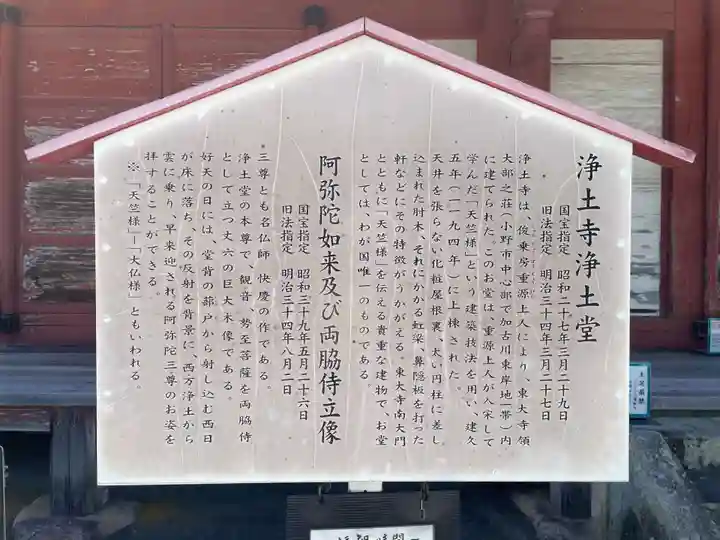 浄土寺浄土堂
国宝指定 昭和二十七年三月二十九日
旧法指定 明治三十四年三月二十七日
浄土寺は、俊乗房重源上人により、東大寺領
大部之荘(小野市中心部で加古川東岸地一帯)内
に建てられた。このお堂は、重源上人が入宋して
学んだ「天竺様」という建築技法を用い、建久
五年(一一九四年)に上棟された。
天井を張らない化粧屋根裏、太い円柱に差し
込まれた肘木、それにかかる虹梁、鼻隠板を打った
軒などにその特徴がうかがえる。東大寺南大門
とともに「天竺様」を伝える貴重な建物で、お堂
としては、わが国唯一のものである。
阿弥陀如来及び両脇侍立像
国宝指定 昭和三十九年五月二十六日
旧法指定 明治三十四年八月二日
三尊とも名仏師 快慶の作である。
浄土堂の本尊で、観音、勢至菩薩を両脇侍
として立つ丈六の巨大木像である。
好天の日には、堂背の蔀戸から射し込む西日
が床に落ち、その反射を背景に、西方浄土から
雲に乗り、早来迎される阿弥陀三尊のお姿を
拝することができる。
※「天竺様」―「大仏様」ともいわれる。
土足厳禁